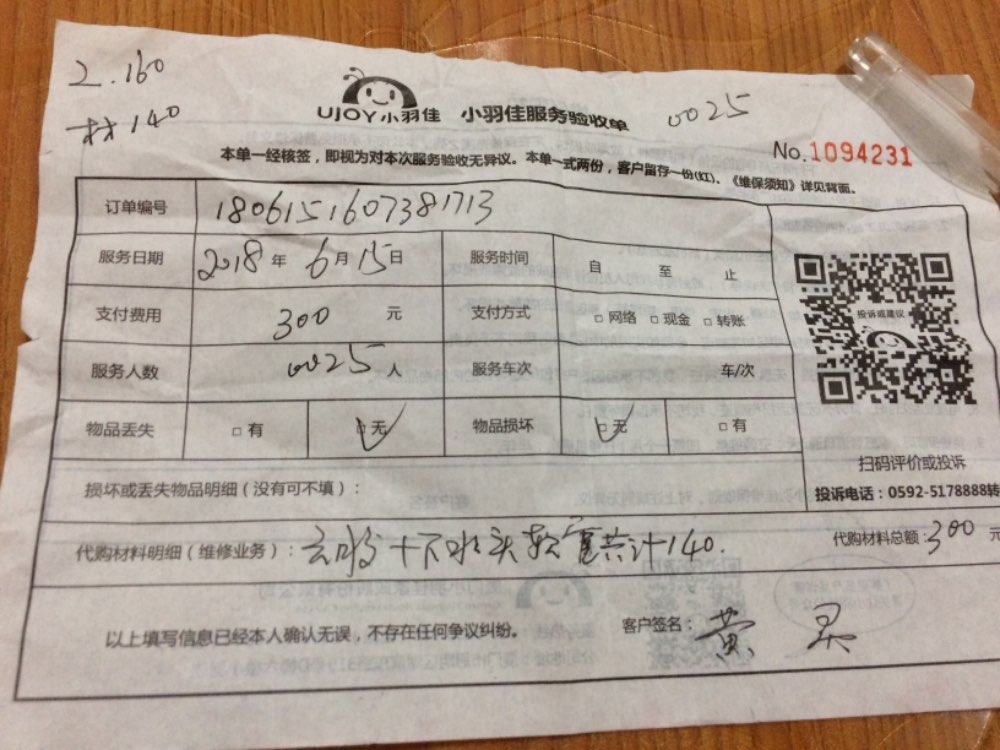 2.160
材140
UJOY小羽佳 小羽佳服务验收单 0025
No.1094231
本单一经核签，即视为对本次服务验收无异议。本单一式两份，客户留存一份(红)、《维保须知》详见背面。
订单编号 1806151607381713
服务日期 2018 年 6 月 15 日 服务时间 自 至 止
支付费用 300 元 支付方式 □ 网络 □ 现金 □ 转账
投诉或建议
服务人数 0025 人 服务车次 车/次
物品丢失 □ 有 □ 无 物品损坏 □ 无 □ 有
扫码评价或投诉
损坏或丢失物品明细（没有可不填）：
投诉电话：0592-5178888转
代购材料明细（维修业务）： 十下水头软管共计140. 代购材料总额：300 元
以上填写信息已经本人确认无误，不存在任何争议纠纷。 客户签名： 黄